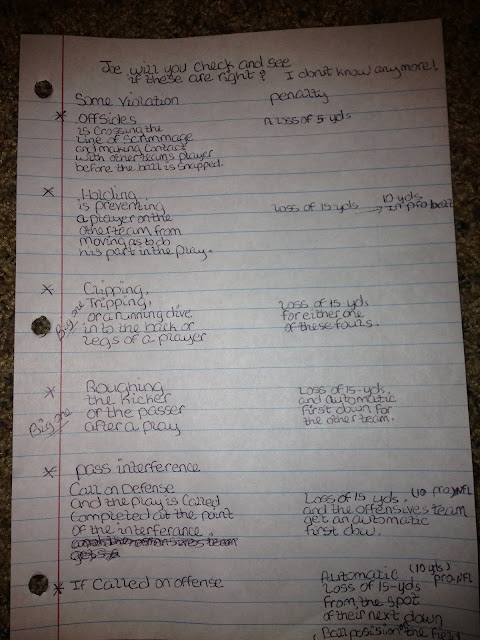 Joe will you check and see
if these are right? I don't know anymore!
Some Violation penalty
* Offsides A Loss of 5 yds
is Crossing the
Line of Scrimmage
and making Contact
with other teams player
before the ball is snapped.
* Holding
is preventing
a player on the Loss of 15 yds → 10 yds in pro
other team from
moving as to do
his part in the play.
* Clipping,
Big one Tripping, Loss of 15 yds
or a running dive for either one
in to the back or of these fouls.
legs of a player
* Roughing Loss of 15-yds.
the Kicker and automatic
or the passer First down for
Big one after a play the other team.
* pass interference
Call on Defense
and the play is Called Loss of 15 yds. (10 pro) NFL
Completed at the point and the offensives team
of the interferance. get an automatic
first dow.
* If Called on offense Automatic (10 yds) pro NFL
Loss of 15-yds
from the spot
of their next down